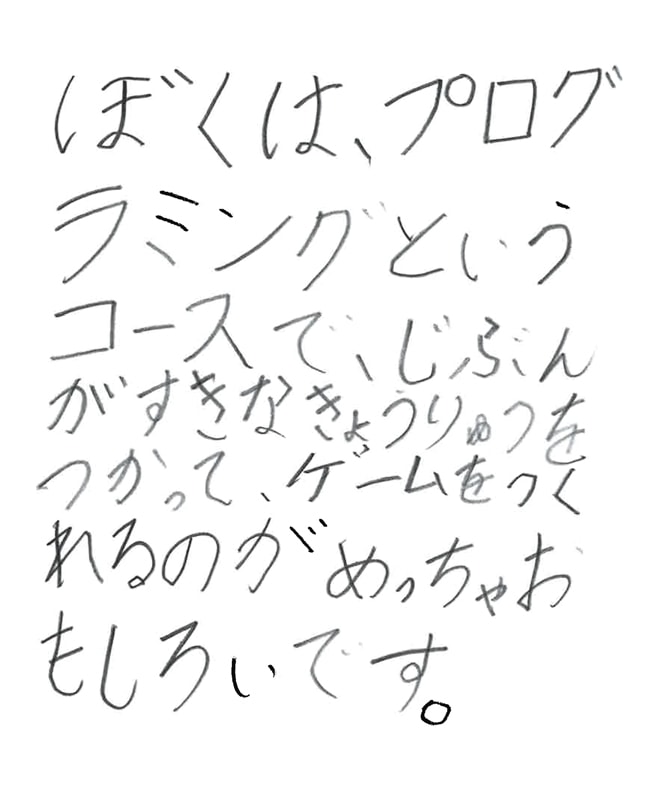 ぼくは、プログ
ラミングという
コースで、じぶん
がすきなきょうりゅうを
つかって、ゲームをつく
れるのがめっちゃお
もしろいです。